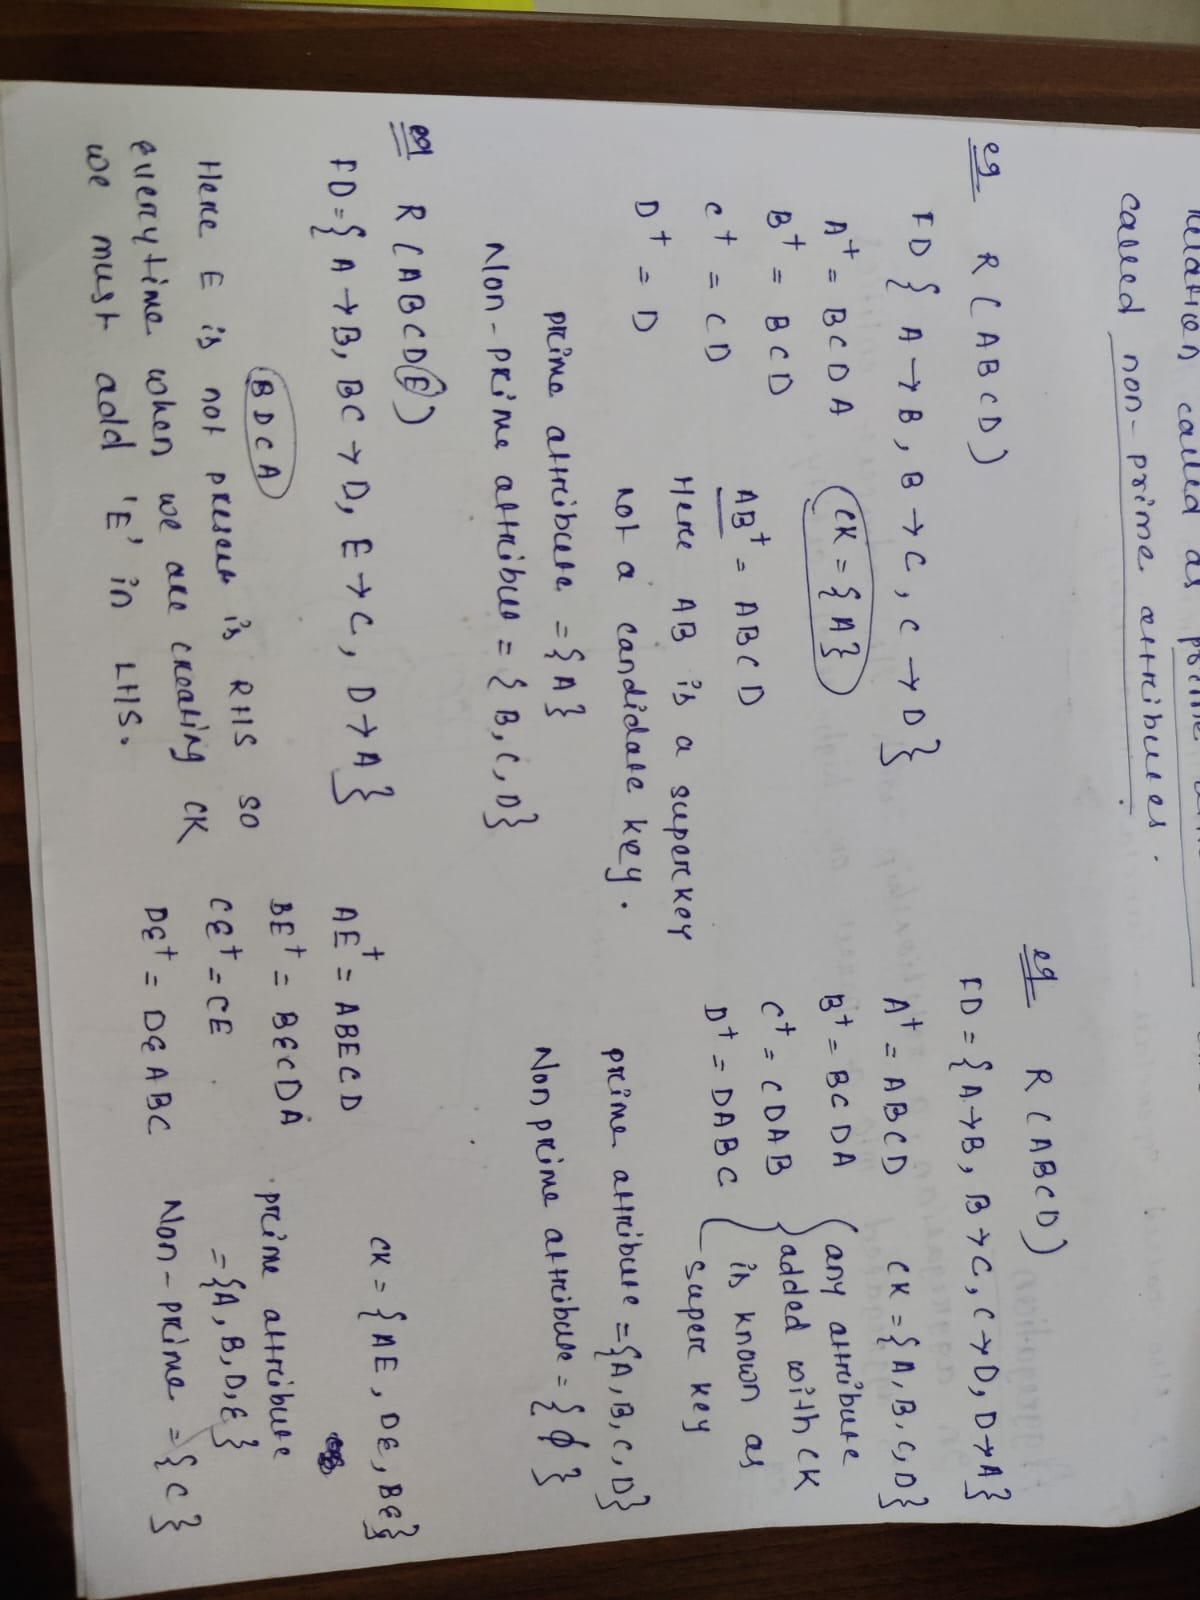 relation called as prime
called non-prime attributes.
eg R ( A B C D )
FD { A → B , B → C , C → D }
A⁺ = B C D A
CK = { A }
B⁺ = B C D
AB⁺ = A B C D
C⁺ = C D
Here AB is a super key
D⁺ = D
not a candidate key.
prime attribute = { A }
Non-prime attribute = { B, C, D }
eg R ( A B C D )
FD = { A → B, B → C, C → D, D → A }
A⁺ = A B C D
CK = { A, B, C, D }
B⁺ = B C D A
any attribute
C⁺ = C D A B
added with CK
is known as
D⁺ = D A B C
super key
prime attribute = { A, B, C, D }
Non prime attribute = { ϕ }
eg R ( A B C D E )
FD = { A → B, BC → D, E → C, D → A }
B D C A
Here E is not present is RHS so
everytime when we are creating CK
we must add 'E' in LHS.
AE⁺ = A B E C D
CK = { AE, DE, BE }
BE⁺ = B E C D A
CE⁺ = C E
DE⁺ = D E A B C
prime attribute
= { A, B, D, E }
Non-prime = { C }